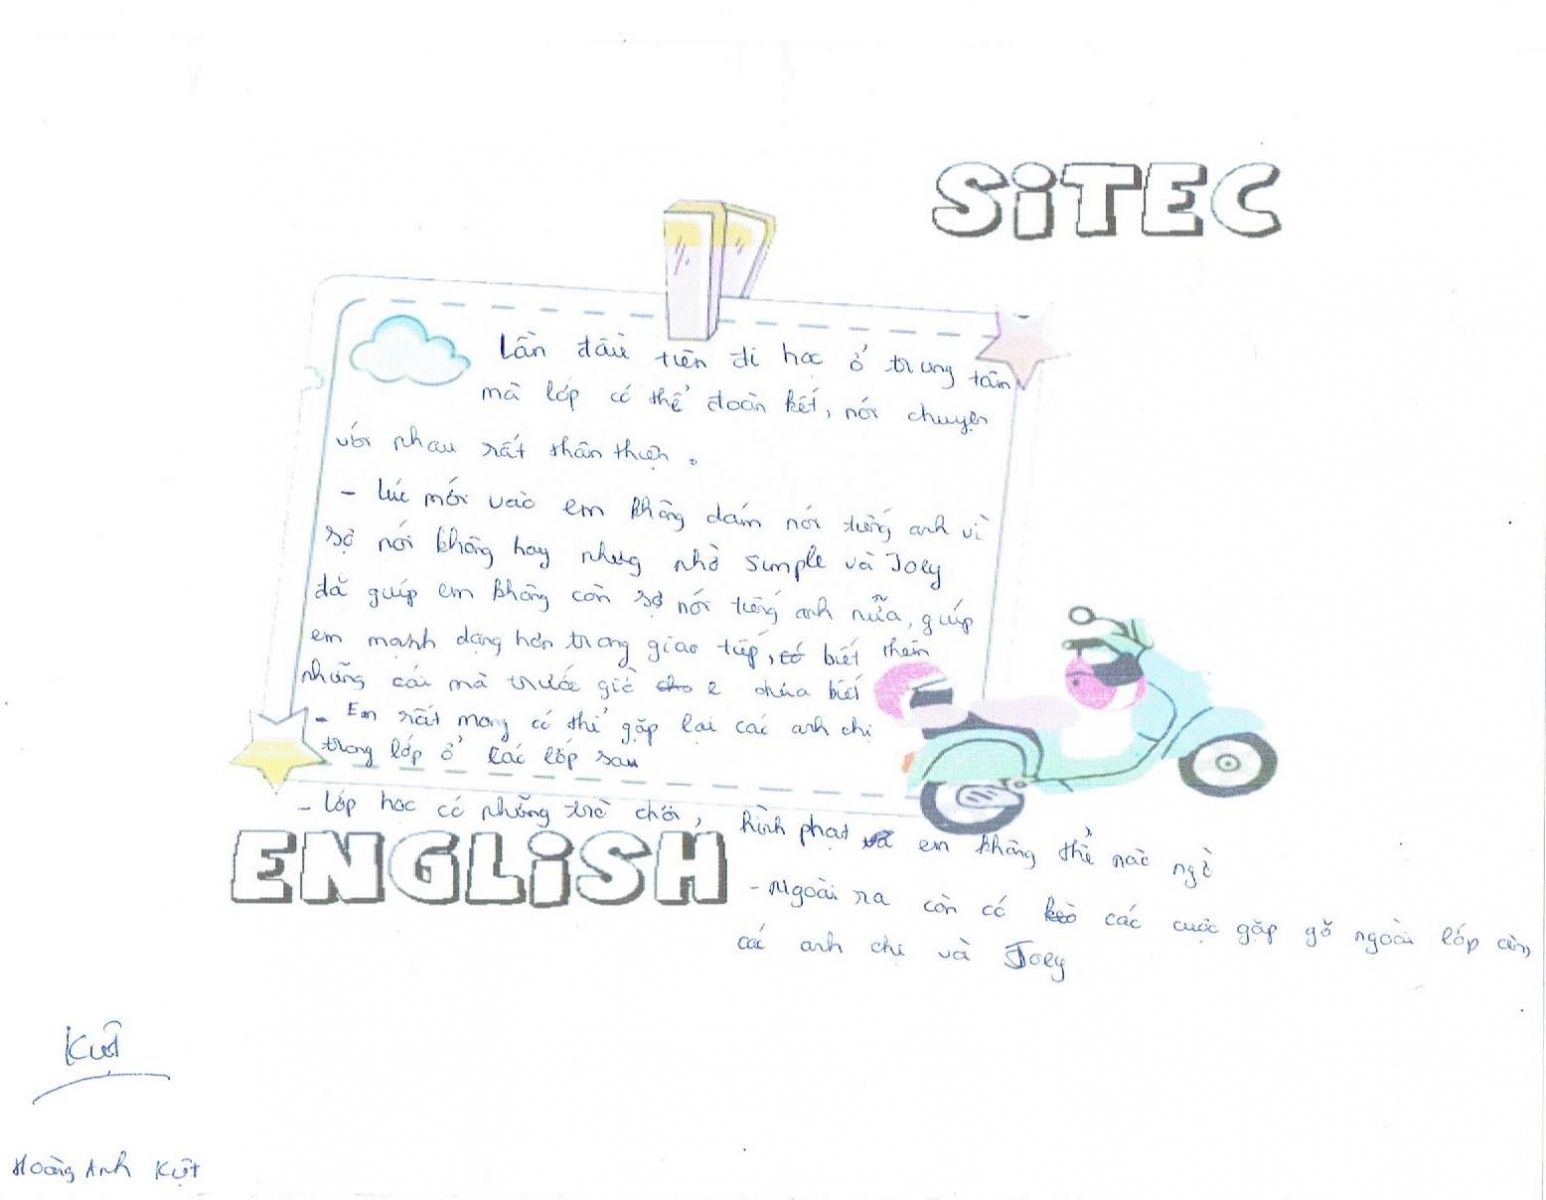 SiTEC
Lần đầu tiên đi học ở trung tâm
mà lớp có thể đoàn kết, nói chuyện
với nhau rất thân thiện.
- lúc mới vào em không dám nói tiếng anh vì
sợ nói không hay nhưng nhờ Simple và Joey
đã giúp em không còn sợ nói tiếng anh nữa, giúp
em mạnh dạng hơn trong giao tiếp, biết thêm
những cái mà trước giờ e chưa biết
- Em rất mong có thể gặp lại các anh chị
trong lớp ở các lớp sau
- Lớp học có những trò chơi, hình phạt em không thể nào ngờ
ENGLiSH
- Ngoài ra còn có các cuộc gặp gỡ ngoài lớp cùng
các anh chị và Joey
Hoàng Anh Kiệt